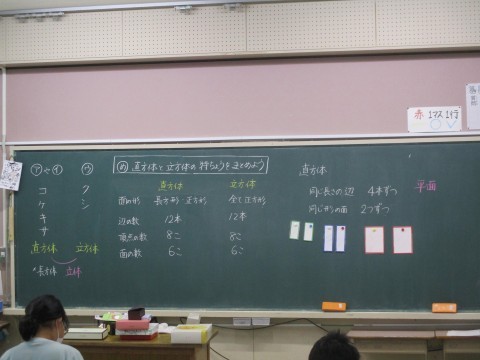 赤 1マス1行
㋐や㋑
㋒
コ
ケ
キ
サ
ク
シ
直方体
立方体
長方体
立体
め 直方体と立方体の特ちょうをまとめよう
直方体 立方体
面の形 長方形・正方形 全て正方形
辺の数 12本 12本
頂点の数 8こ 8こ
面の数 6こ 6こ
直方体
同じ長さの辺 4本ずつ
同じ形の面 2つずつ
平面